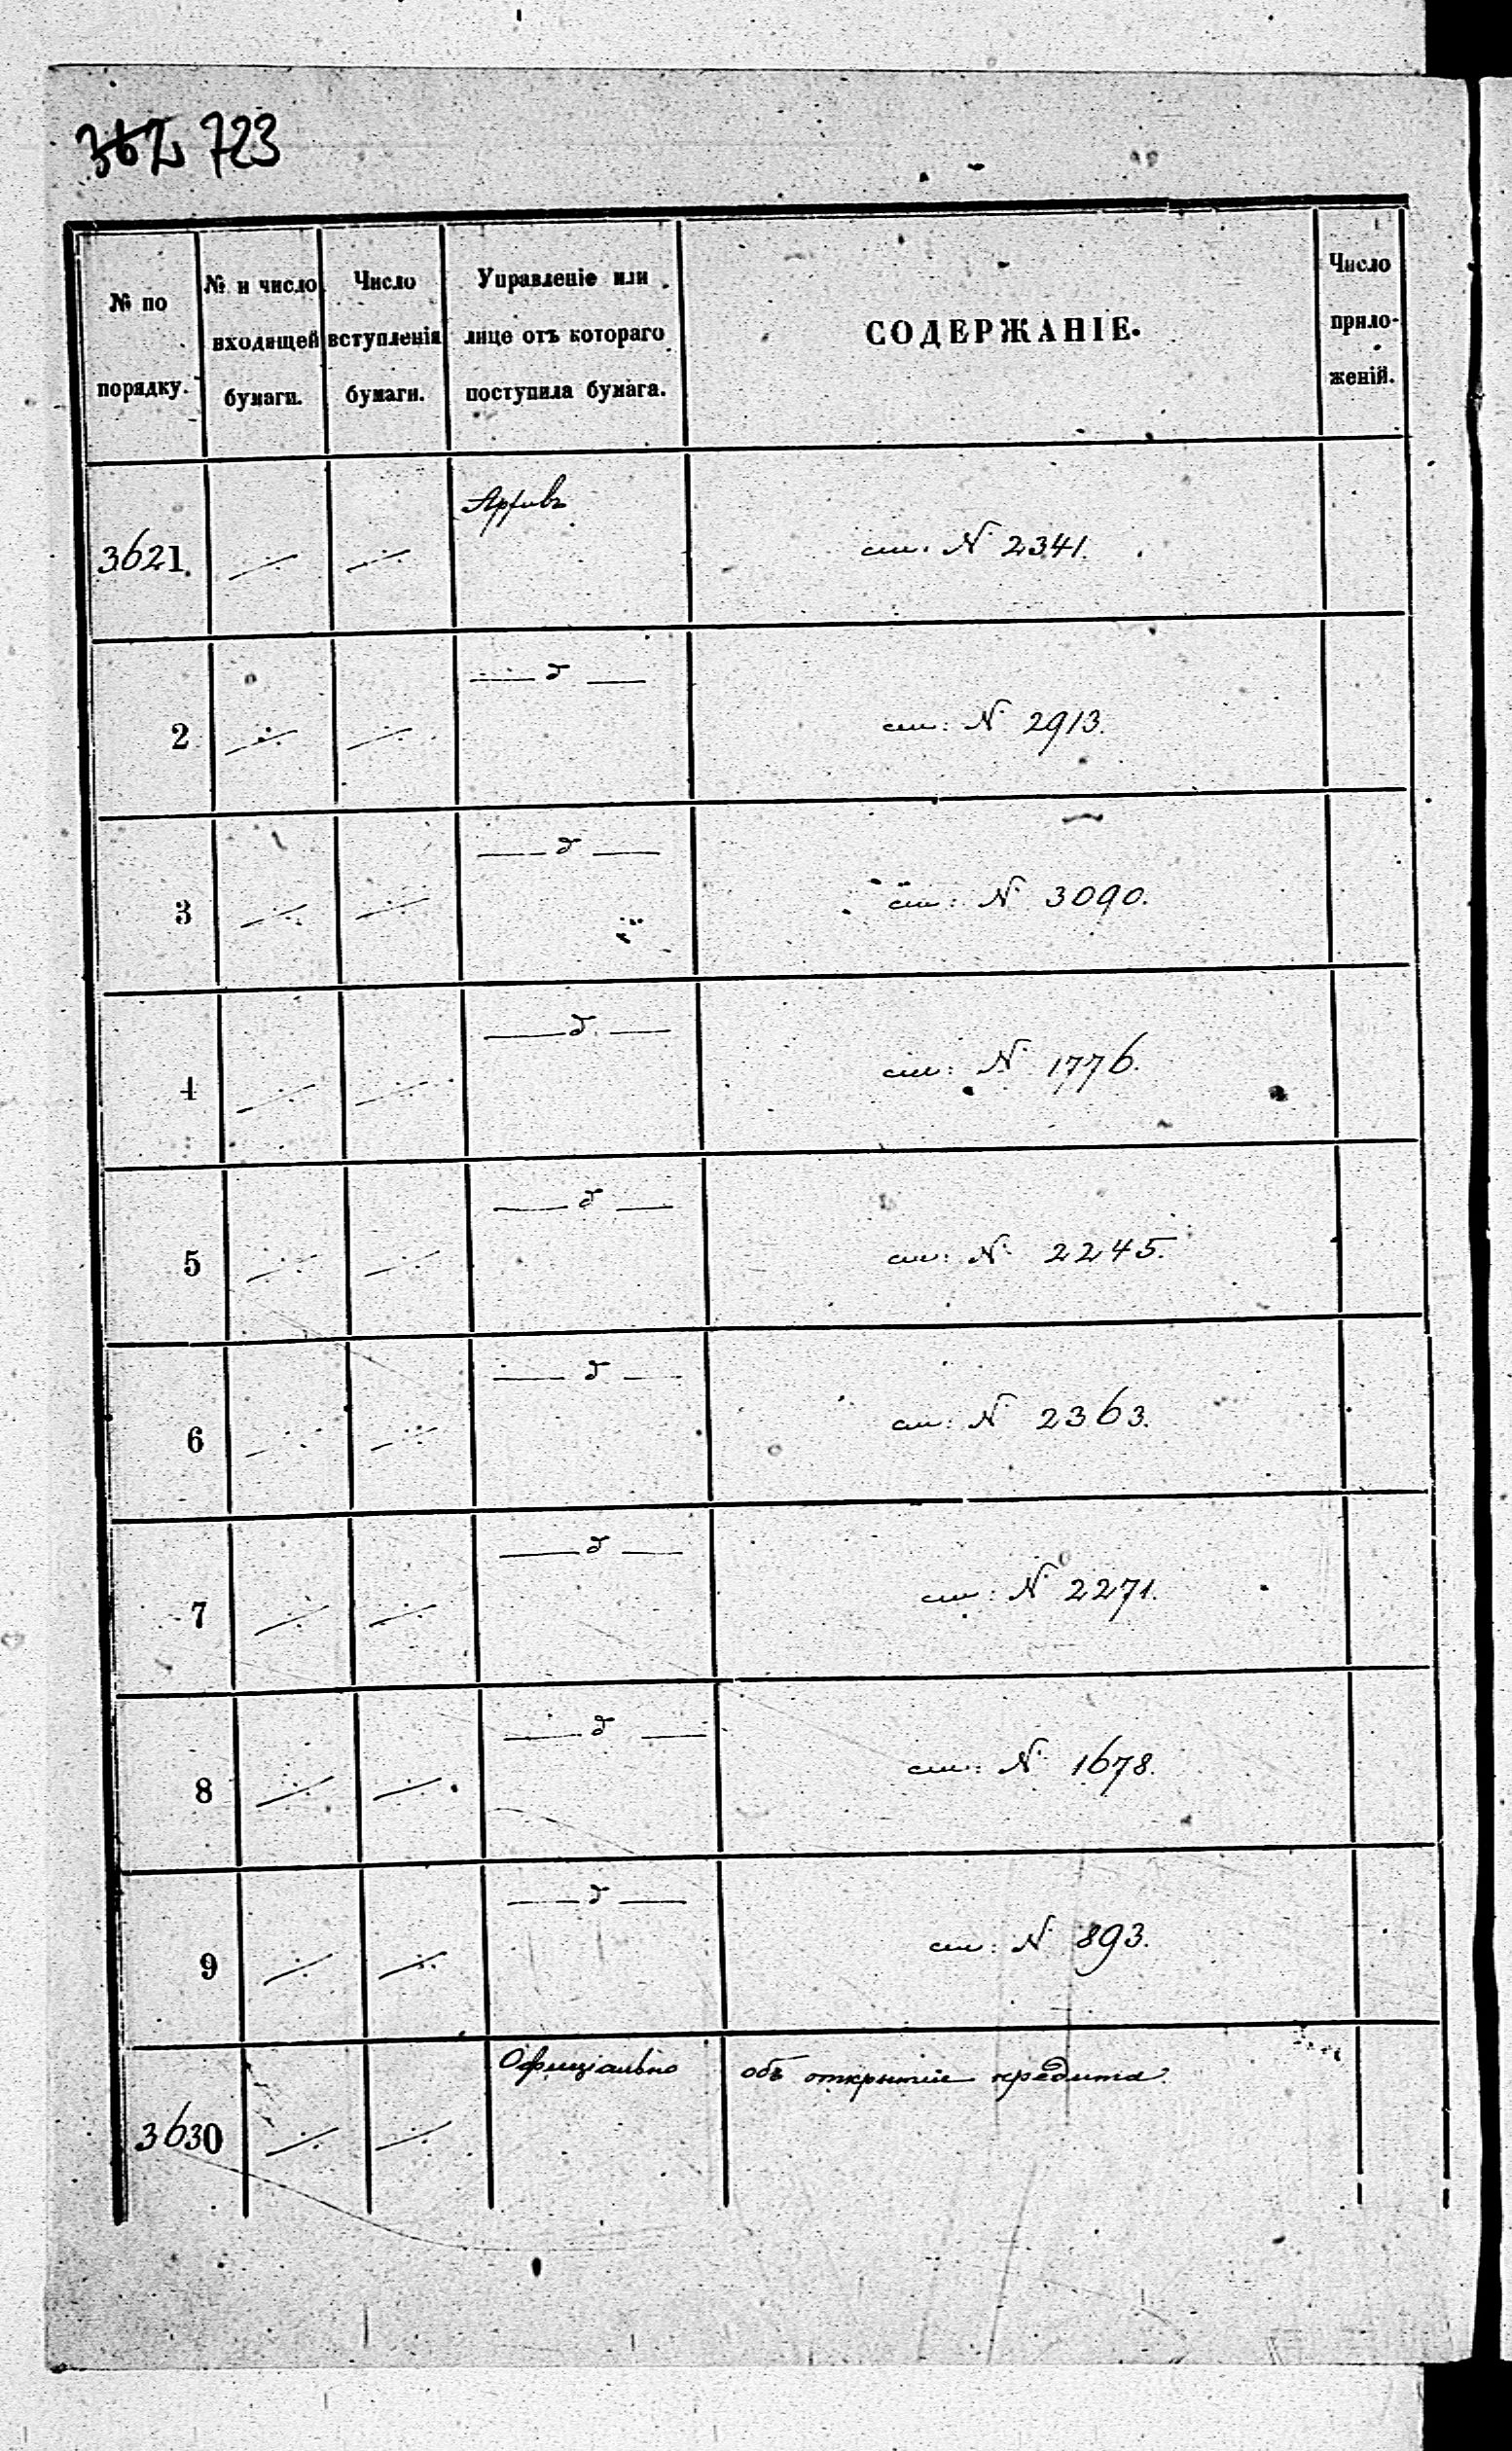 362 723
№ по порядку.
№ и число входящей бумаги.
Число вступленія бумаги.
Управленіе или лице отъ котораго поступила бумага.
СОДЕРЖАНІЕ.
Число прило-женій.
3621. ÷ ÷ Архивъ см. № 2341.
2 ÷ ÷ — д — см: № 2913.
3 ÷ ÷ — д — см: № 3090.
4 ÷ ÷ — д — см: № 1776.
5 ÷ ÷ — д — см: № 2245.
6 ÷ ÷ — д — см: № 2363.
7 ÷ ÷ — д — см: № 2271.
8 ÷ ÷ — д — см: № 1678.
9 ÷ ÷ — д — см: № 893.
3630 ÷ ÷ Офиціально объ открытіи кредита.